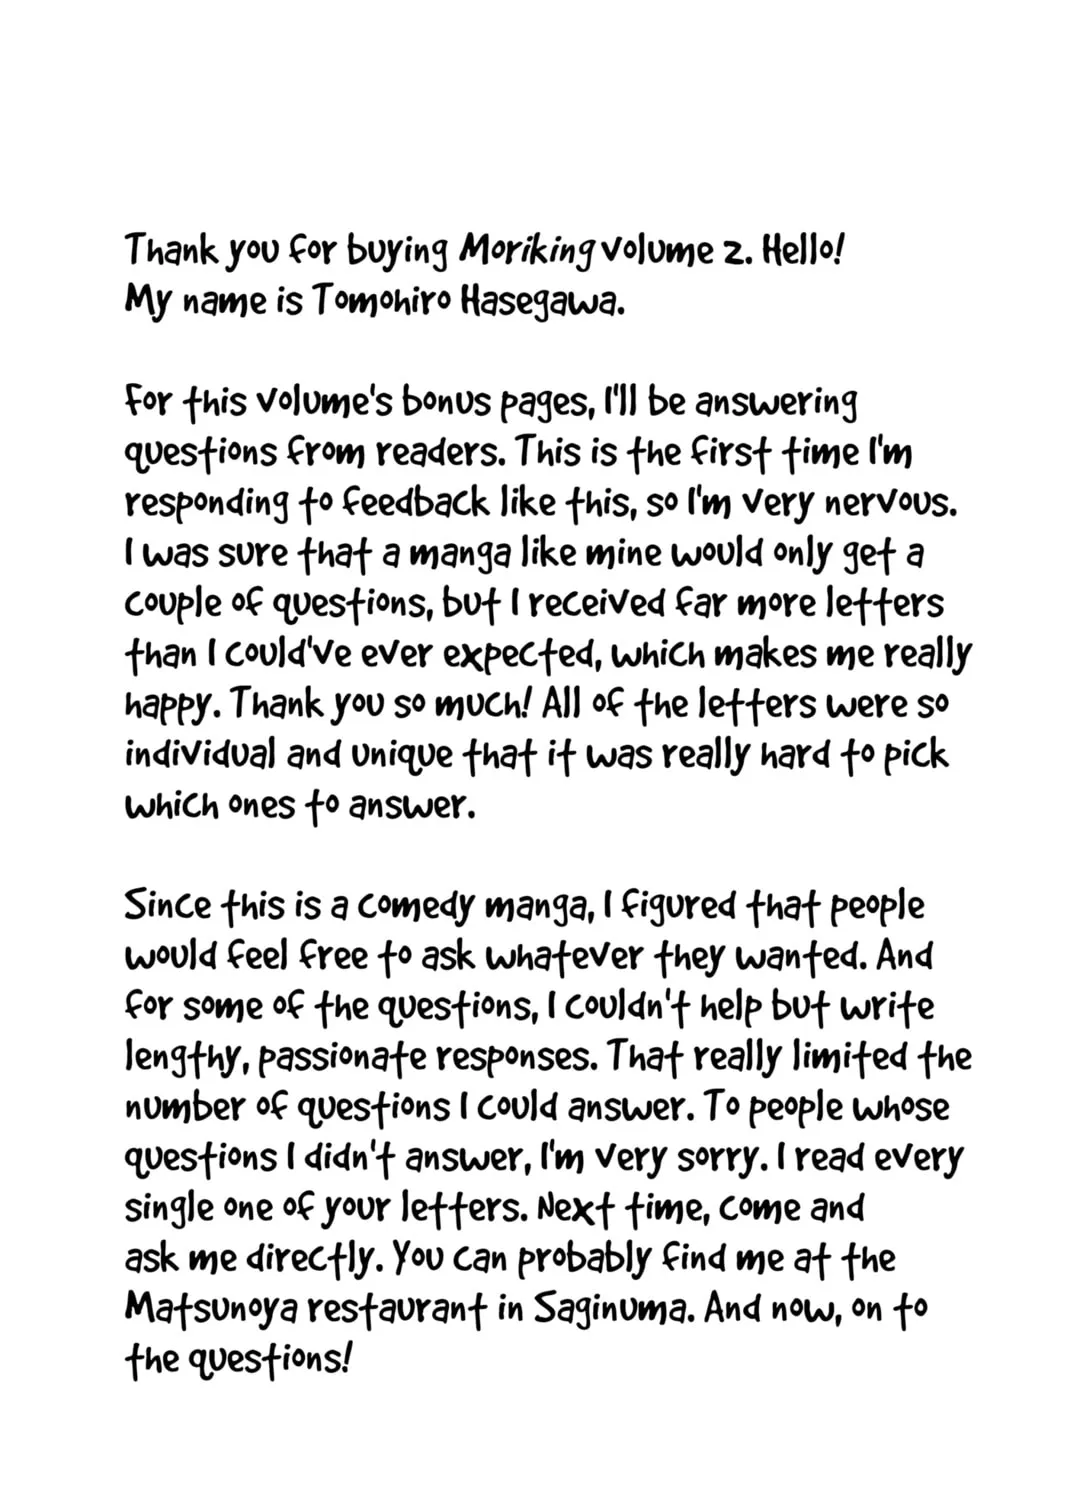 Thank you for buying Moriking volume 2. Hello!
My name is Tomohiro Hasegawa.
For this volume's bonus pages, I'll be answering
questions from readers. This is the first time I'm
responding to feedback like this, so I'm very nervous.
I was sure that a manga like mine would only get a
couple of questions, but I received far more letters
than I could've ever expected, which makes me really
happy. Thank you so much! All of the letters were so
individual and unique that it was really hard to pick
which ones to answer.
Since this is a comedy manga, I figured that people
would feel free to ask whatever they wanted. And
for some of the questions, I couldn't help but write
lengthy, passionate responses. That really limited the
number of questions I could answer. To people whose
questions I didn't answer, I'm very sorry. I read every
single one of your letters. Next time, come and
ask me directly. You can probably find me at the
Matsunoya restaurant in Saginuma. And now, on to
the questions!